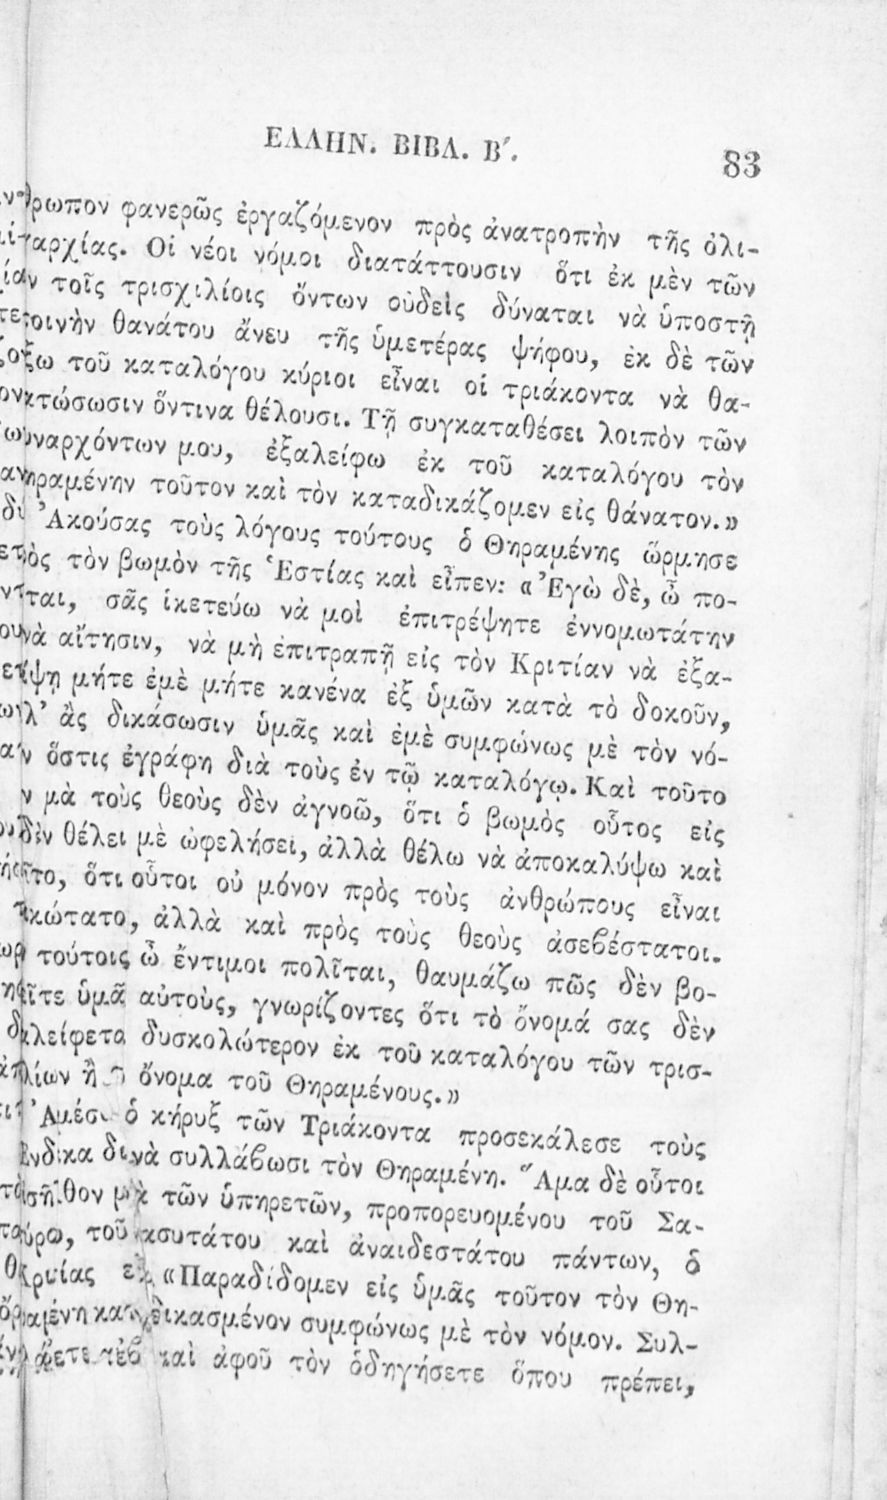 ΕΛΛΗΝ. ΒΙΒΛ. Β΄.
83
φανερῶς ἐργαζόμενον πρὸς ἀνατροπὴν τῆς ὀλι-
γαρχίας. Οἱ νέοι νόμοι διατάττουσιν ὅτι ἐκ μὲν τῶν
ἐν τοῖς τρισχιλίοις ὄντων οὐδεὶς δύναται νὰ ὑποστῇ
ποινὴν θανάτου ἄνευ τῆς ὑμετέρας ψήφου, ἐκ δὲ τῶν
ἔξω τοῦ καταλόγου κύριοι εἶναι οἱ τριάκοντα νὰ θα-
νατώσωσιν ὅντινα θέλουσι. Τῇ συγκαταθέσει λοιπὸν τῶν
συναρχόντων μου, ἐξαλείφω ἐκ τοῦ καταλόγου τὸν
Θηραμένην τοῦτον καὶ τὸν καταδικάζομεν εἰς θάνατον.»
Ἀκούσας τοὺς λόγους τούτους ὁ Θηραμένης ὥρμησε
πρὸς τὸν βωμὸν τῆς Ἑστίας καὶ εἶπεν: «Ἐγὼ δὲ, ὦ πο-
λῖται, σᾶς ἱκετεύω νὰ μοὶ ἐπιτρέψητε ἐννομωτάτην
τινὰ αἴτησιν, νὰ μὴ ἐπιτραπῇ εἰς τὸν Κριτίαν νὰ ἐξα-
λείψῃ μήτε ἐμὲ μήτε κανένα ἐξ ὑμῶν κατὰ τὸ δοκοῦν,
ἀλλ’ ἂς δικάσωσιν ὑμᾶς καὶ ἐμὲ συμφώνως μὲ τὸν νό-
μον ὅστις ἐγράφη διὰ τοὺς ἐν τῷ καταλόγῳ. Καὶ τοῦτο
μὲν μὰ τοὺς θεοὺς δὲν ἀγνοῶ, ὅτι ὁ βωμὸς οὗτος εἰς
οὐδὲν θέλει μὲ ὠφελήσει, ἀλλὰ θέλω νὰ ἀποκαλύψω καὶ
τοῦτο, ὅτι οὗτοι οὐ μόνον πρὸς τοὺς ἀνθρώπους εἶναι
ἀδικώτατο, ἀλλὰ καὶ πρὸς τοὺς θεοὺς ἀσεβέστατοι.
τούτοις ὦ ἔντιμοι πολῖται, θαυμάζω πῶς δὲν βο-
ηθεῖτε ὑμᾶ αὐτοὺς, γνωρίζοντες ὅτι τὸ ὄνομά σας δὲν
ἐξαλείφετα δυσκολώτερον ἐκ τοῦ καταλόγου τῶν τρισ-
χιλίων ἢ ὄνομα τοῦ Θηραμένους.»
Ἀμέσ ὁ κήρυξ τῶν Τριάκοντα προσεκάλεσε τοὺς
Ἕνδεκα νὰ συλλάβωσι τὸν Θηραμένη. Ἅμα δὲ οὗτοι
τῶν ὑπηρετῶν, προπορευομένου τοῦ Σα-
τύρου, τοῦ καὶ ἀναιδεστάτου πάντων, ὁ
Κριτίας «Παραδίδομεν εἰς ὑμᾶς τοῦτον τὸν Θη-
ραμένη συμφώνως μὲ τὸν νόμον. Συλ-
καὶ ἀφοῦ τὸν ὁδηγήσετε ὅπου πρέπει,